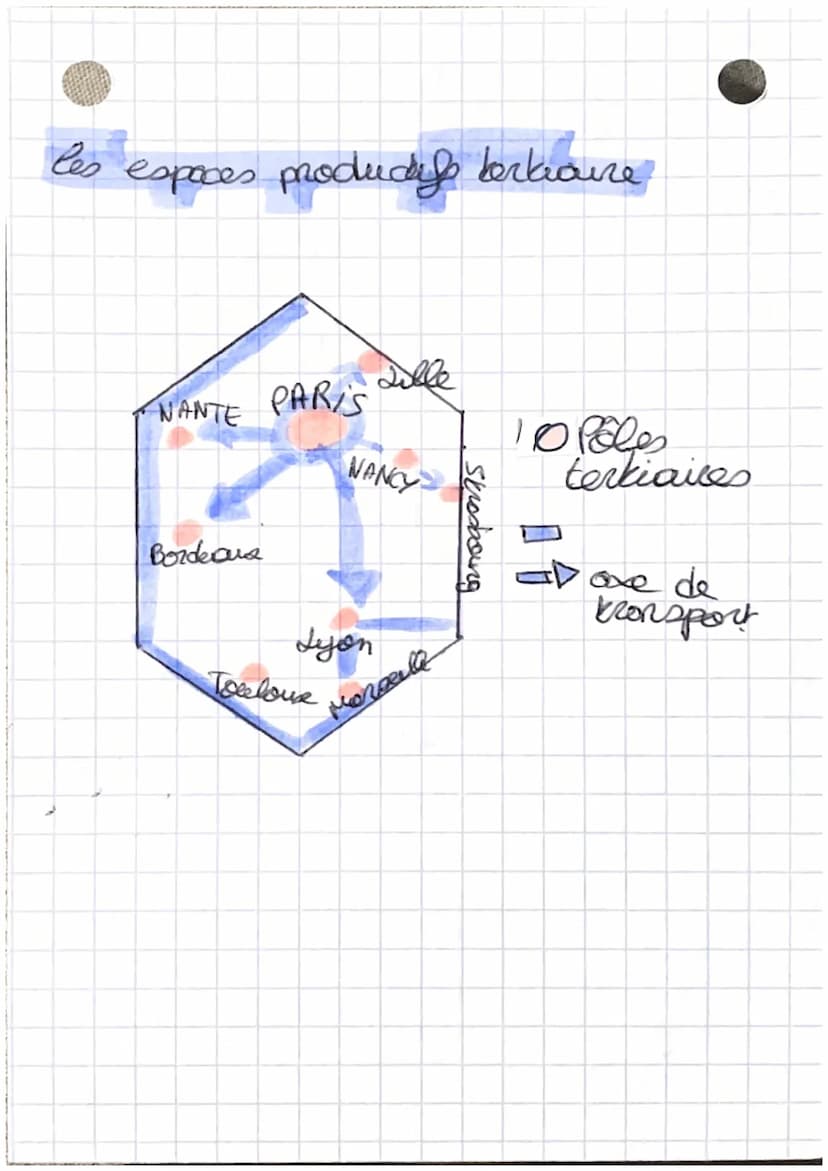 les espaces productifs tertiaire
Lille
PARIS
NANTE
NANCY
Strasbourg
Bordeaux
Lyon
Toulouse
Marseille
Pôles
tertiaires
axe de
transport